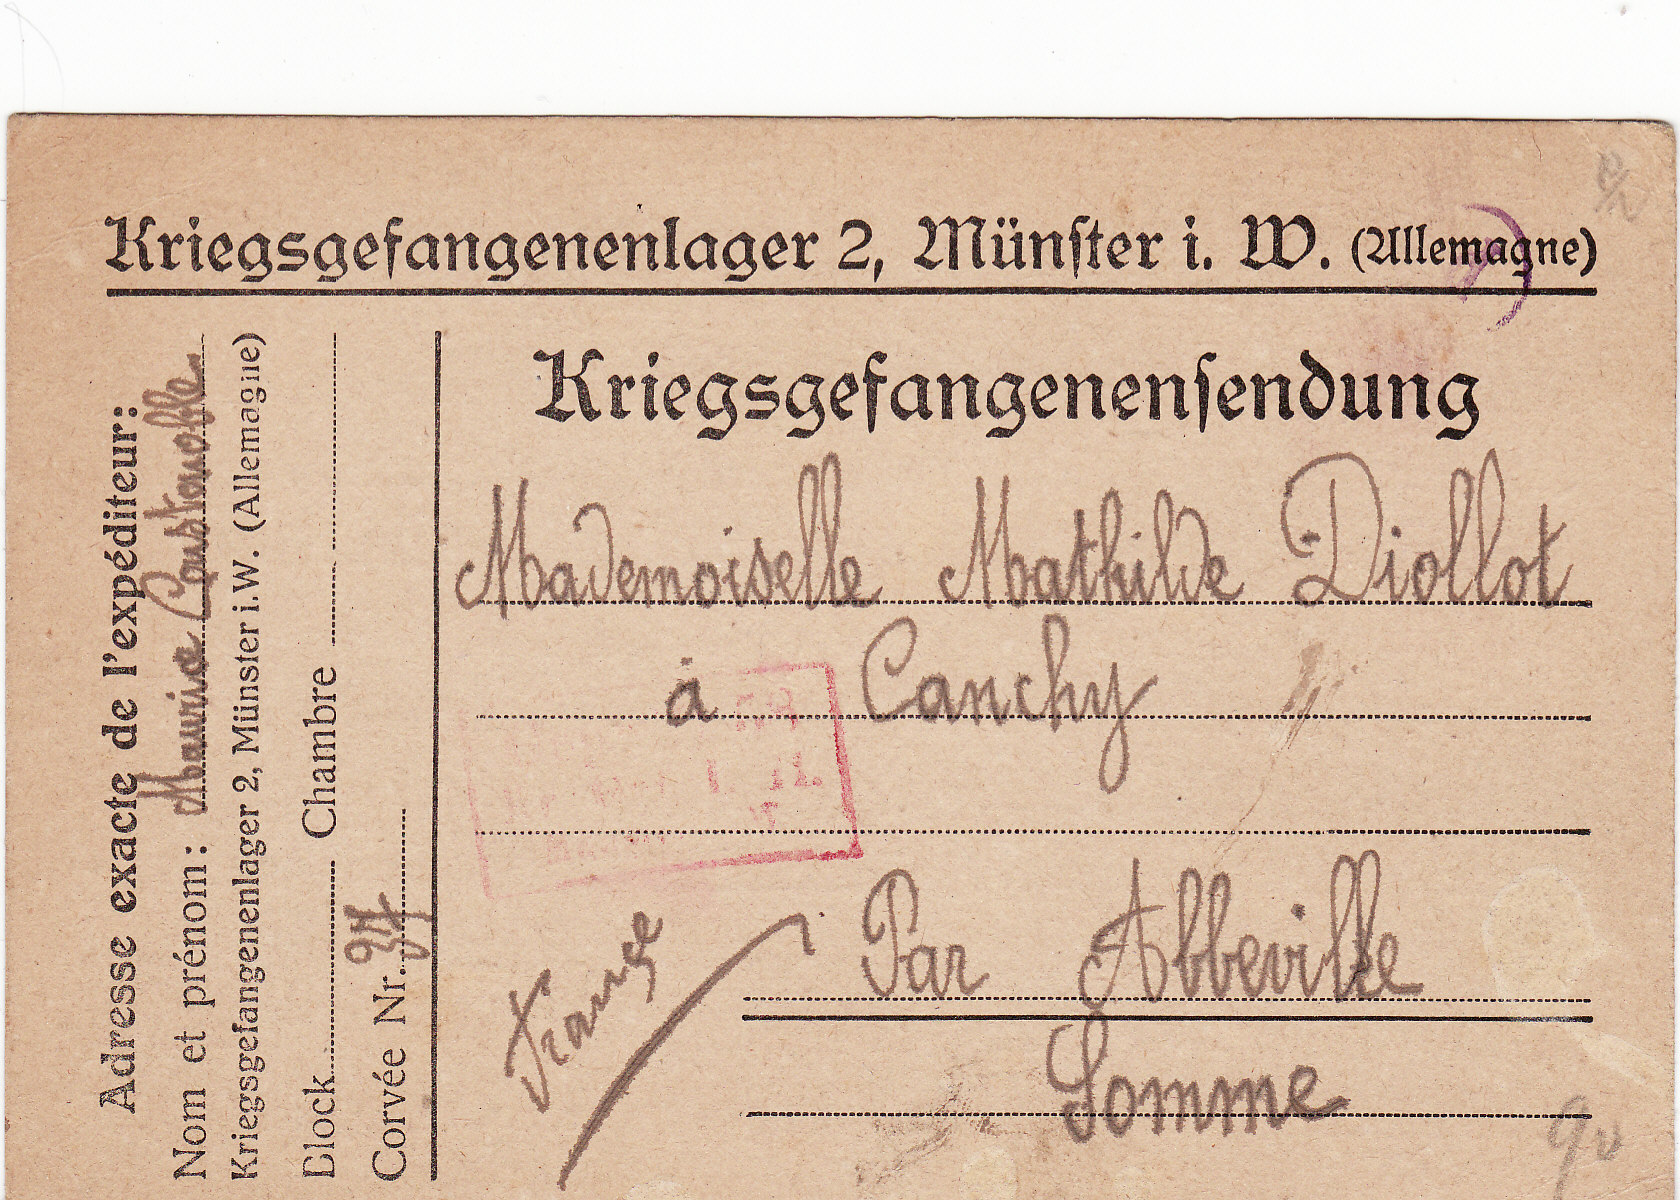 Kriegsgefangenenlager 2, Münster i. W. (Allemagne)
Adresse exacte de l'expéditeur:
Nom et prénom: Maurice Coustenoble
Kriegsgefangenenlager 2, Münster i.W. (Allemagne)
Block Chambre
Corvée Nr.
Kriegsgefangenensendung
Mademoiselle Mathilde Diollot
à Canchy
Par Abbeville
Somme
France